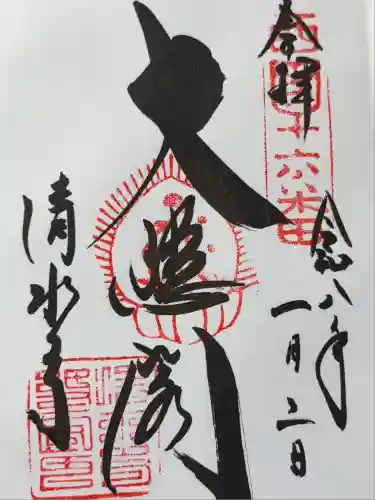 奉拝
西国十六番
令和八年
一月三日
大悲閣
清水寺